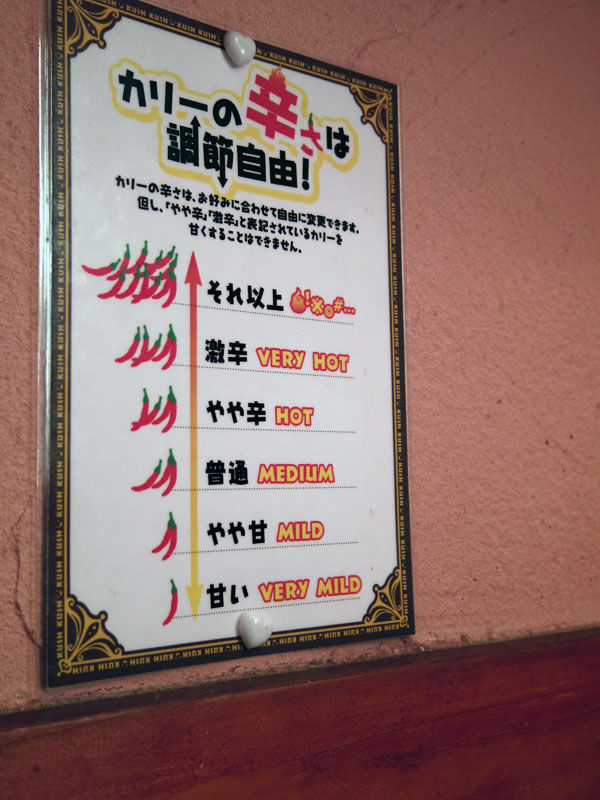 カリーの辛さは
調節自由!
カリーの辛さは、お好みに合わせて自由に変更できます。
但し、「やや辛」「激辛」と表記されているカリーを
甘くすることはできません。
それ以上 !*@#...
激辛 VERY HOT
やや辛 HOT
普通 MEDIUM
やや甘 MILD
甘い VERY MILD
KUSH KUSH KUSH KUSH KUSH KUSH